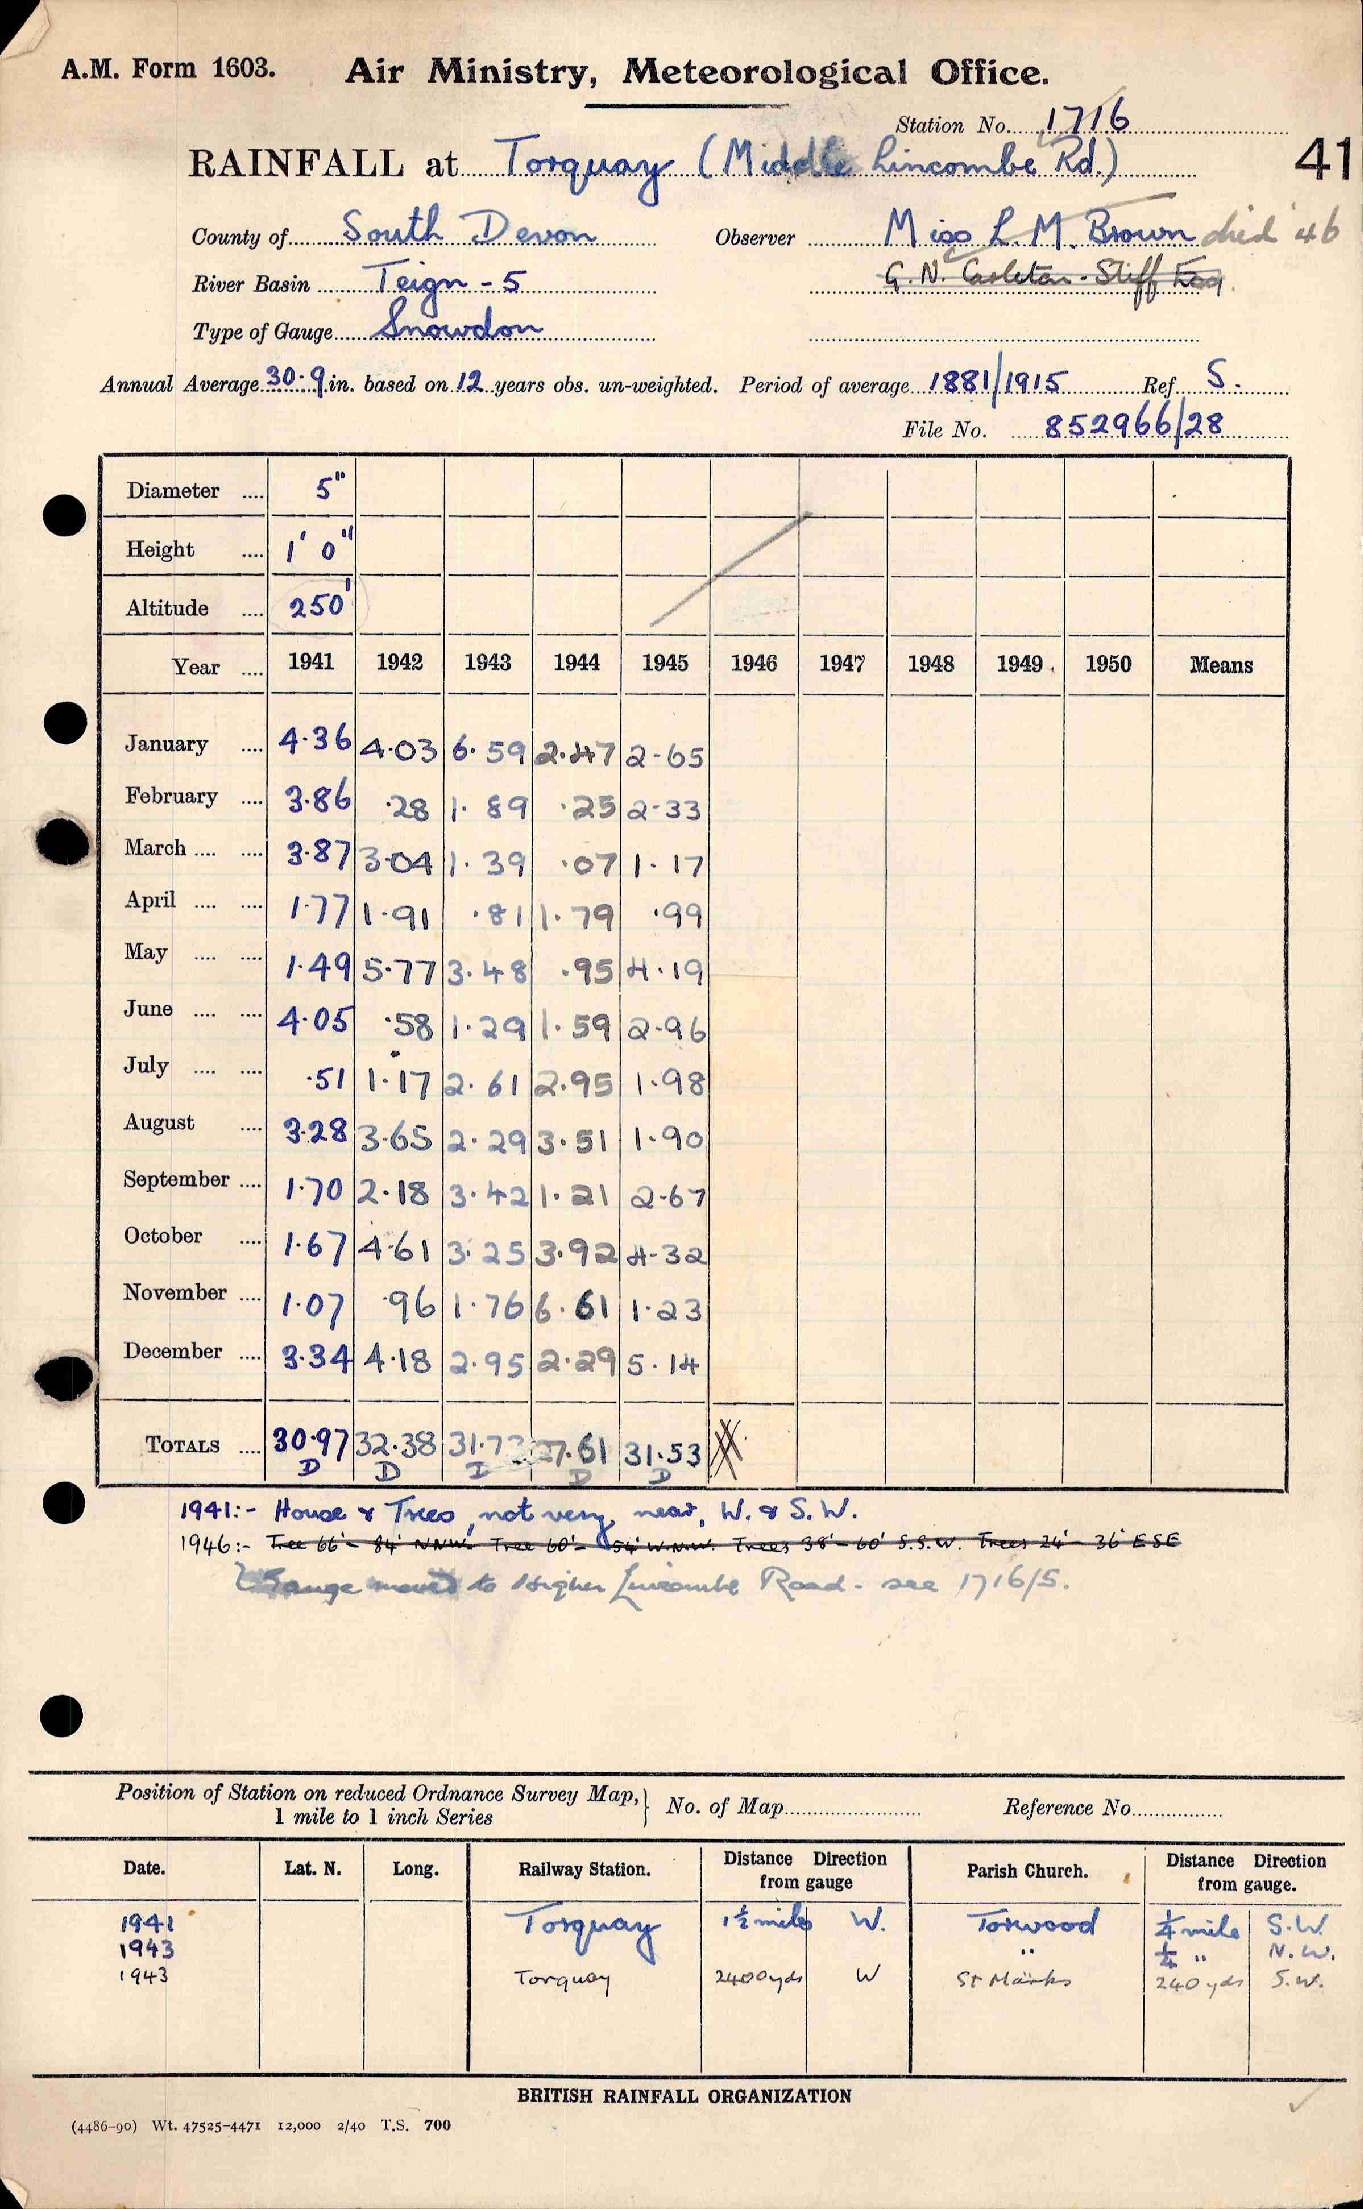 A.M. Form 1603. Air Ministry, Meteorological Office.
Station No. 1716
RAINFALL at Torquay (Middle Lincombe Rd.) 41
County of South Devon Observer Miss L. M. Brown died '46
River Basin Teign - 5 G. N. Carleton-Stiff Esq.
Type of Gauge Snowdon
Annual Average 30.9 in. based on 12 years obs. un-weighted. Period of average 1881/1915 Ref S.
File No. 852966/28
Diameter .... 5"
Height .... 1' 0"
Altitude .... 250'
Year .... 1941 1942 1943 1944 1945 1946 1947 1948 1949 1950 Means
January .... 4.36 4.03 6.59 2.47 2.65
February .... 3.86 .28 1.89 .25 2.33
March .... .... 3.87 3.04 1.39 .07 1.17
April .... .... 1.77 1.91 .81 1.79 .99
May .... .... 1.49 5.77 3.48 .95 4.19
June .... .... 4.05 .58 1.29 1.59 2.96
July .... .... .51 1.17 2.61 2.95 1.98
August .... 3.28 3.65 2.29 3.51 1.90
September .... 1.70 2.18 3.42 1.21 2.67
October .... 1.67 4.61 3.25 3.92 4.32
November .... 1.07 .96 1.76 6.61 1.23
December .... 3.34 4.18 2.95 2.29 5.14
TOTALS .... 30.97 32.38 31.73 27.61 31.53
D D D D D
1941:- House & Trees, not very near, W. & S.W.
1946:- Tree 66' - 84' NNW. Tree 60' - 54' W.N.W. Trees 38' - 60' S.S.W. Trees 24' - 36' ESE
Gauge moved to Higher Lincombe Road - see 1716/5.
Position of Station on reduced Ordnance Survey Map, } No. of Map Reference No.
1 mile to 1 inch Series
Date. Lat. N. Long. Railway Station. Distance Direction from gauge Parish Church. Distance Direction from gauge.
1941 Torquay 1½ miles W. Torwood ¼ mile S.W.
1943 " ¼ " N.W.
1943 Torquay 2400 yds W St Marks 240 yds S.W.
BRITISH RAINFALL ORGANIZATION
(4486-90) Wt. 47525-4471 12,000 2/40 T.S. 700